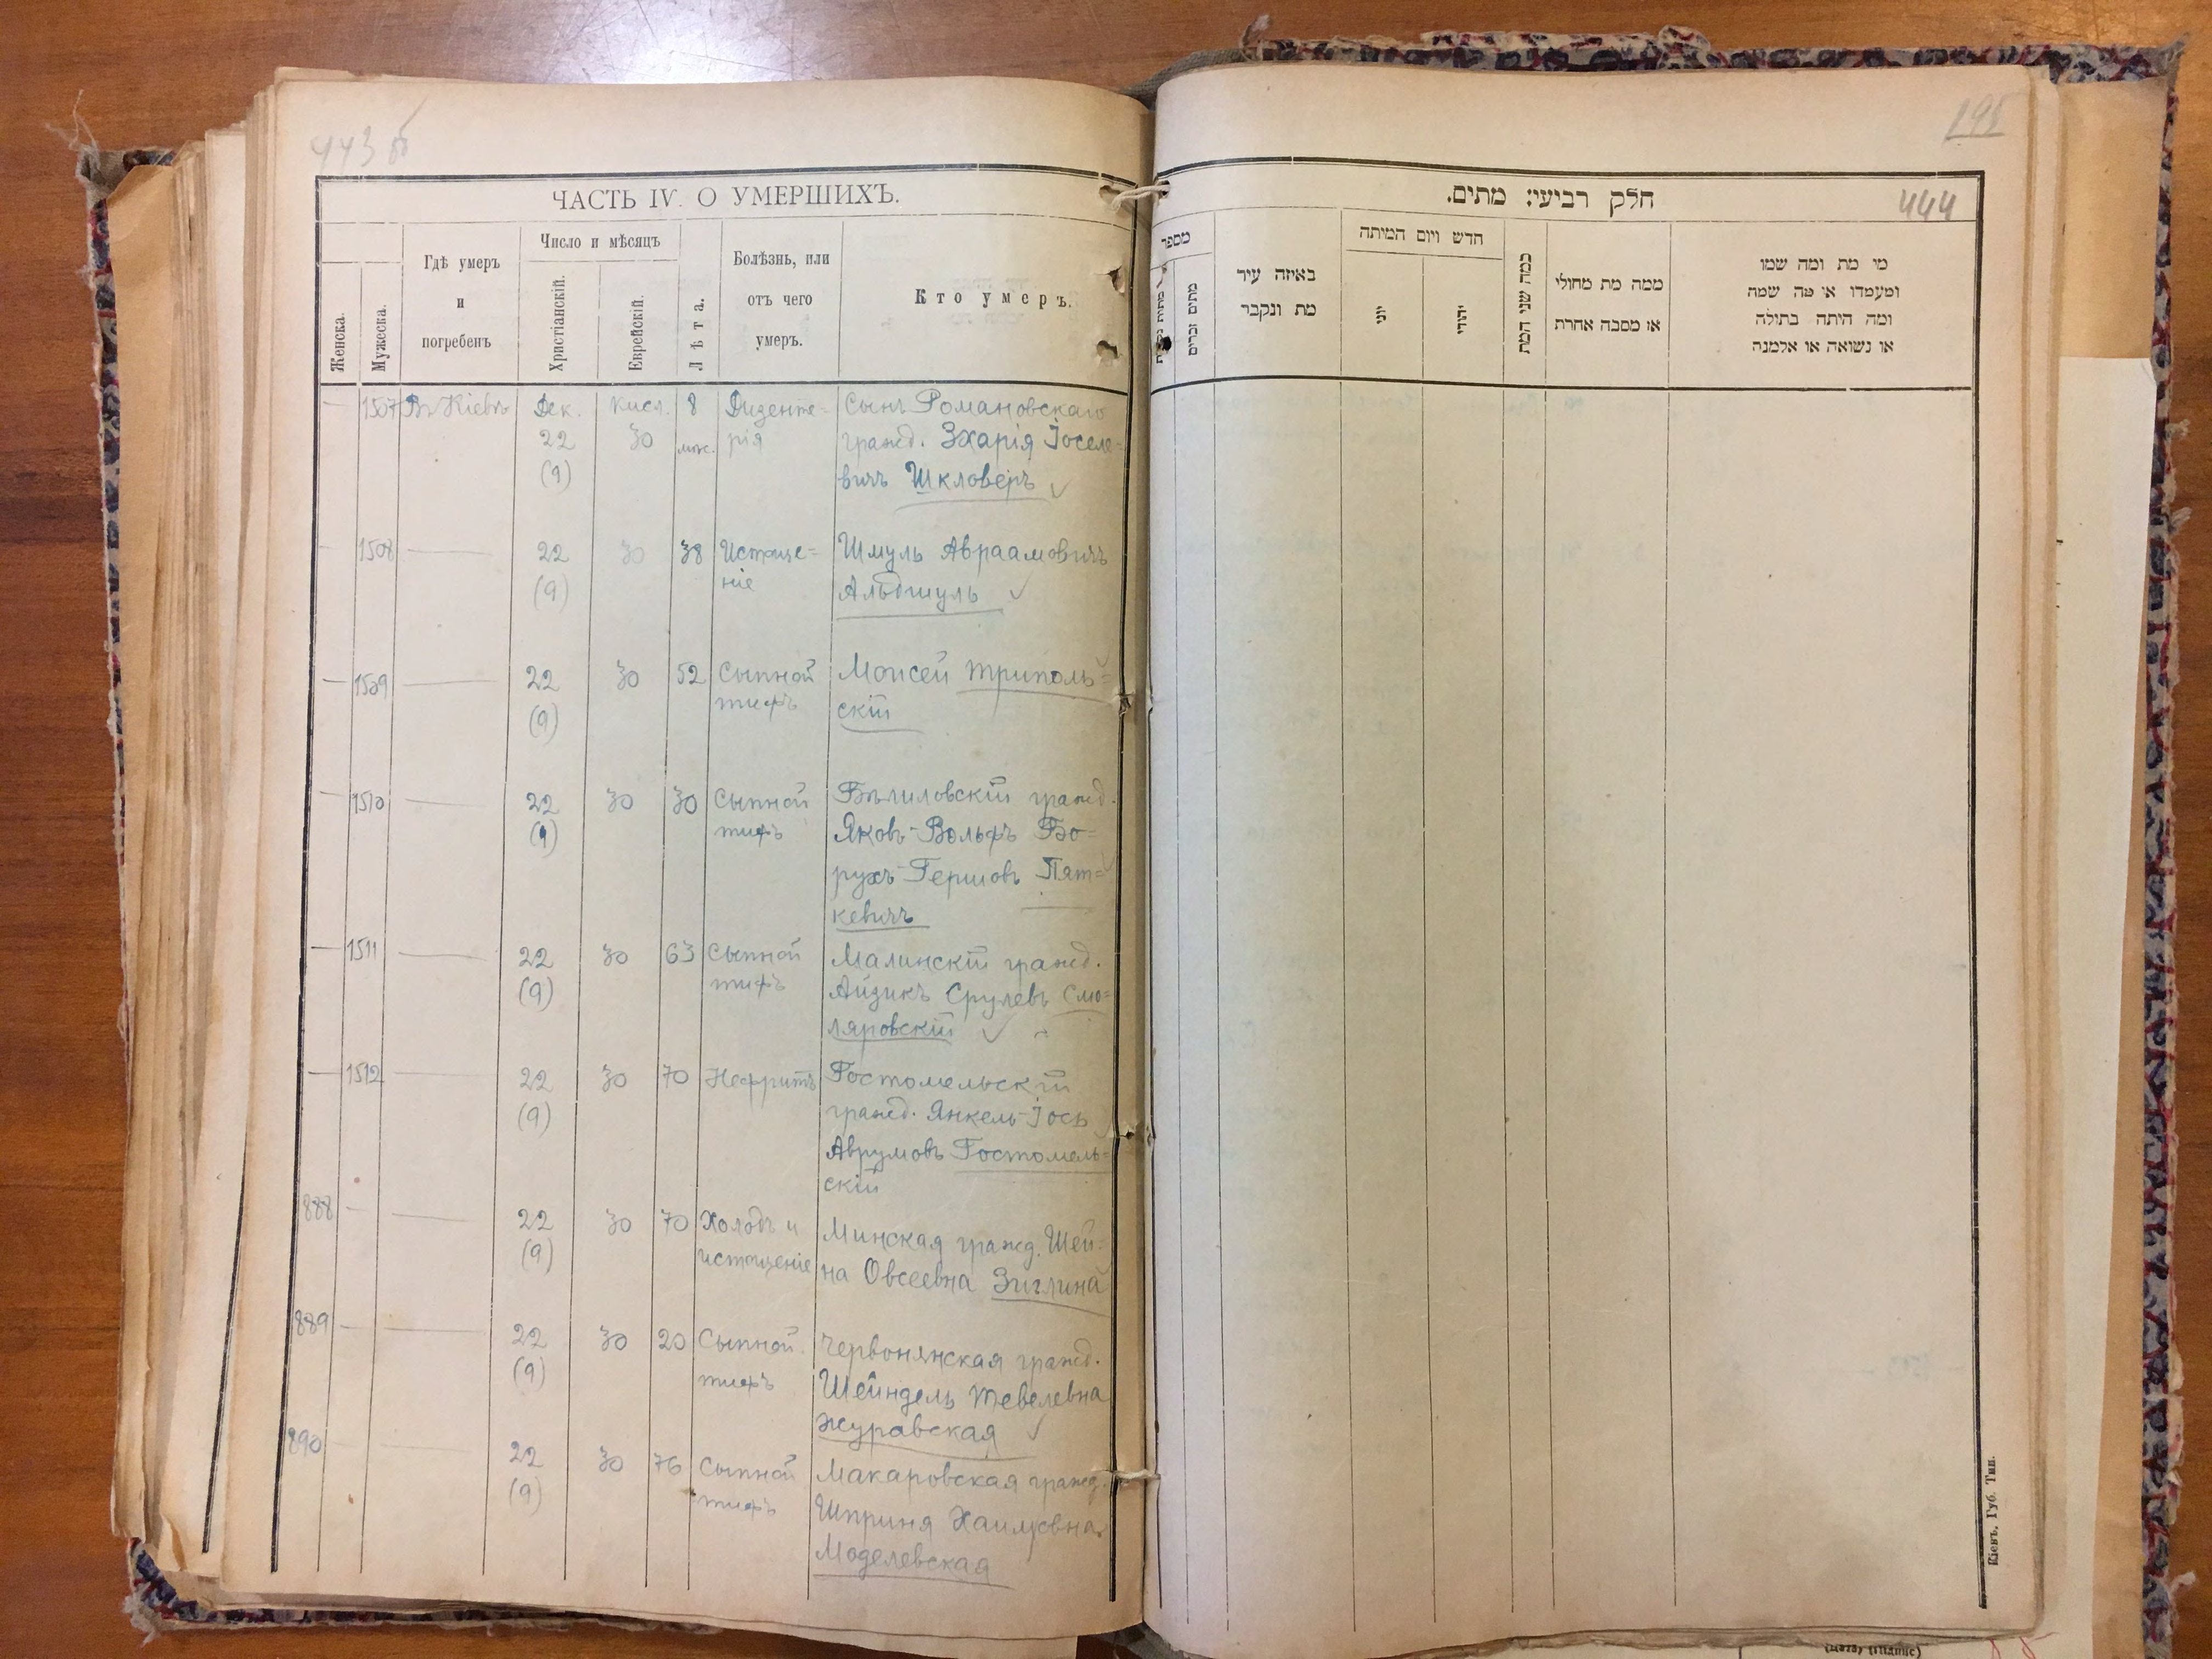 443 об
ЧАСТЬ IV. О УМЕРШИХЪ.
Женска.
Мужеска.
Гдѣ умеръ
и
погребенъ
Число и мѣсяцъ
Христіанскій.
Еврейскій.
Лѣта.
Болѣзнь, или
отъ чего
умеръ.
Кто умеръ.
— 1507 Въ Кіевѣ Дек. Кисл. 8 Дизенте- Сынъ Романовскаго
22 30 мѣс. рія гражд. Зхарія Іоселе-
(9) вичъ Шкловеръ
— 1508 — 22 30 38 Истоще= Шмуль Авраамовичъ
(9) ніе Альбшуль
— 1509 — 22 30 52 Сыпной Моисей Триполь=
(9) тифъ скій
— 1510 — 22 30 30 Сыпной Бѣлиловскій гражд.
(9) тифъ Яковъ-Вольфъ Бо=
рухъ-Гершовъ Пят=
кевичъ
— 1511 — 22 30 63 Сыпной Малинскій гражд.
(9) тифъ Айзикъ Срулевъ Смо=
ляровскій
— 1512 — 22 30 70 Нефритъ Гостомельскій
(9) гражд. Янкель-Іось
Аврумовъ Гостомель=
скій
888 — — 22 30 70 Холодъ и Минская гражд. Шей-
(9) истощеніе на Овсеевна Зиглина
889 — — 22 30 20 Сыпной Червонянская гражд.
(9) тифъ Шейндель Тевелевна
Журавская
890 — — 22 30 76 Сыпной Макаровская гражд.
(9) тифъ Шприня Хаимовна
Моделевская
חלק רביעי: מתים.
444
מספר
מתים זכרים
באיזה עיר
מת ונקבר
חדש ויום המיתה
יוני
יהודי
כמה שני המת
ממה מת מחולי
או מסבה אחרת
מי מת ומה שמו
ומעמדו או מה שמה
ומה היתה בתולה
או נשואה או אלמנה
Кіевъ. Губ. Тип.